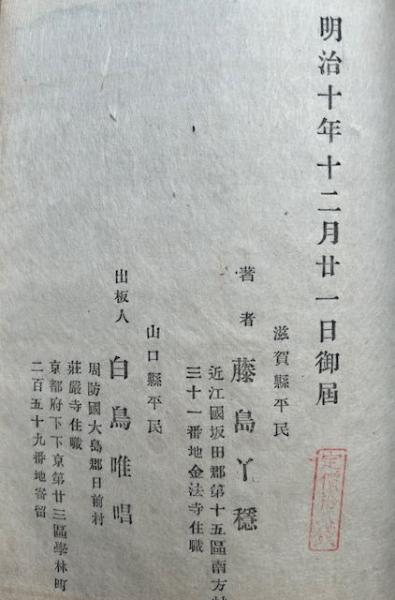 明治十年十二月廿一日御屆
滋賀縣平民
著者 藤島丫穩
近江國坂田郡第十五區南方村
三十一番地金法寺住職
山口縣平民
出板人 白鳥唯唱
周防國大島郡日前村
莊嚴寺住職
京都府下下京第廿三區學林町
二百五十九番地寄留
定價